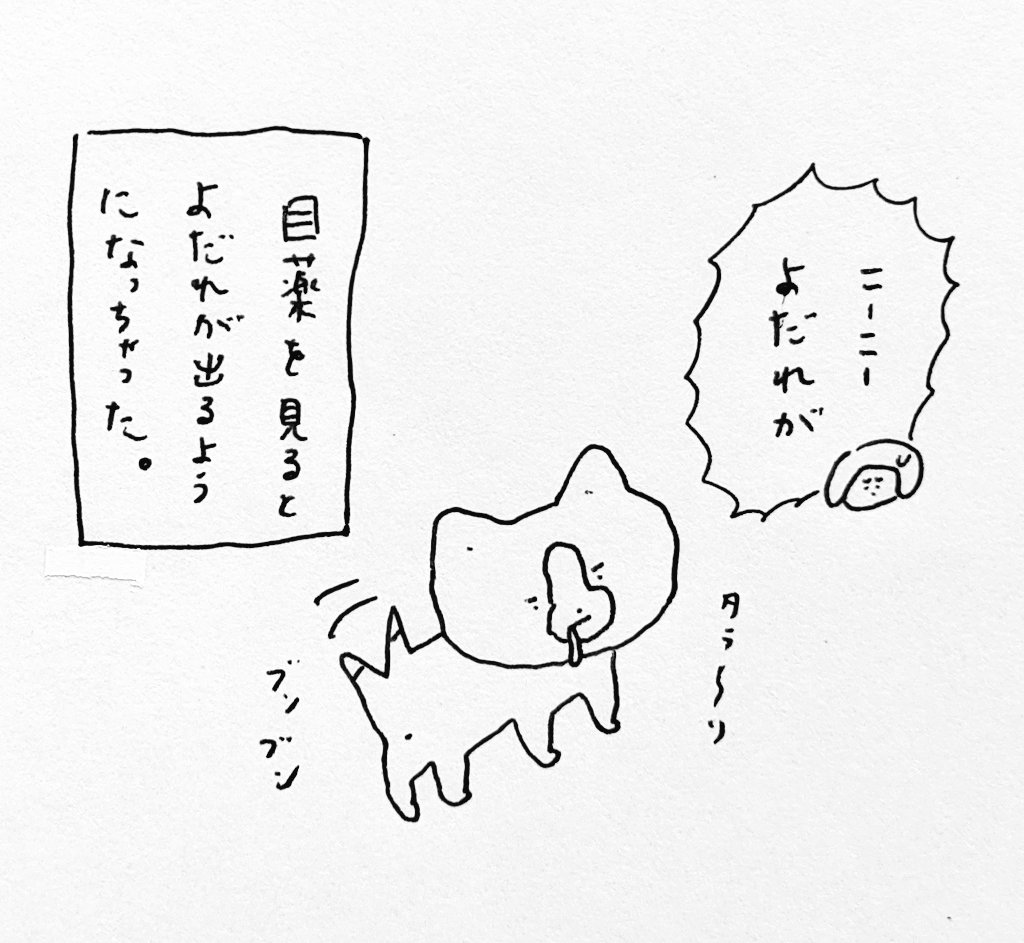 ニーニー
よだれが
目薬を見ると
よだれが出るよう
になっちゃった。
タラ〜リ
ブンブン